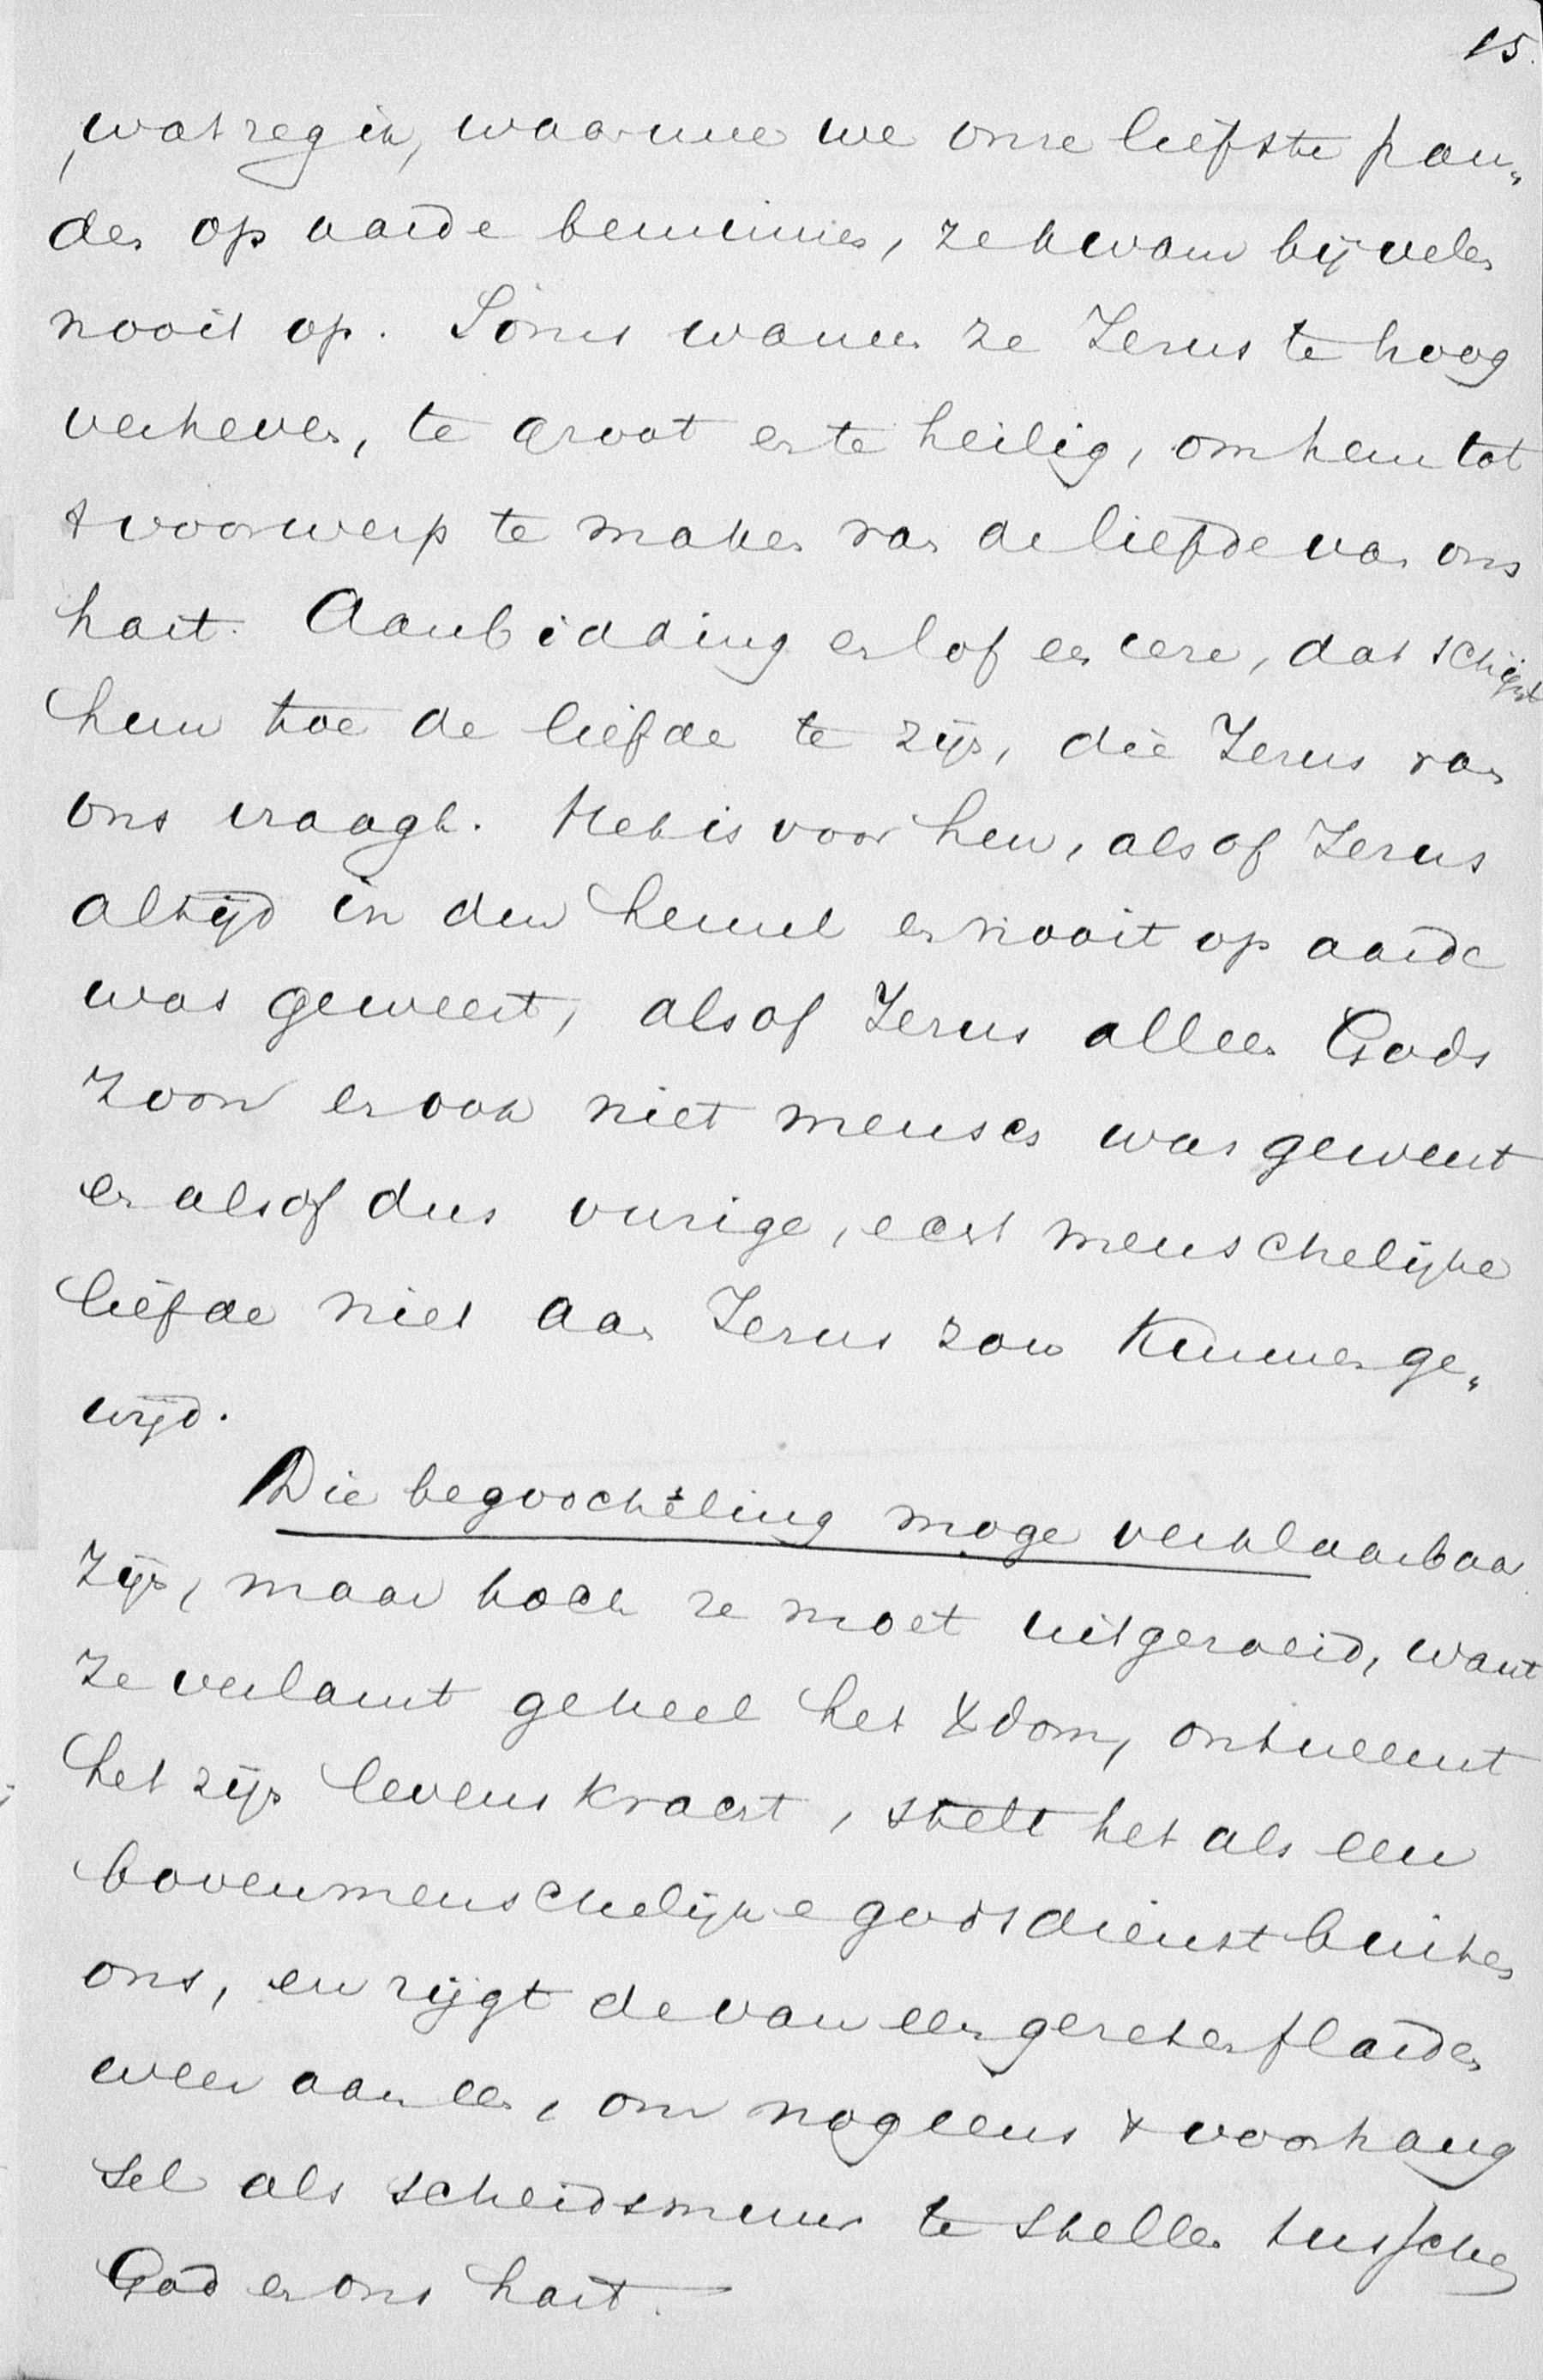 15.
, wat zeg ik, waarmee we onze liefste pan„
den op aarde beminnen, ze kwam bij velen
nooit op. Soms wanen ze Jezus te hoog
verheven, te groot en te heilig, om hem tot
t voorwerp te maken van de liefde van ons
hart. Aanbidding en lof en eere, dat schijnt
hun toe de liefde te zijn, die Jezus van
ons vraagt. Het is voor hen, alsof Jezus
altijd in den hemel en nooit op aarde
was geweest, alsof Jezus alleen Gods
Zoon en ook niet mensch was geweest
en alsof dus vurige, echt menschelijke
liefde niet aan Jezus zou kunnen ge„
wijd.
Die begoocheling moge verklaarbaar
zijn, maar toch ze moet uitgeroeid, want
ze verlamt geheel het Xdom, ontneemt
het zijn levenskracht, stelt het als een
bovenmenschelijke godsdienst buiten
ons, en rijgt de van een gereten flarden
weer aan een, om nog eens t voorhang
sel als scheidsmuur te stellen tusschen
God en ons hart.